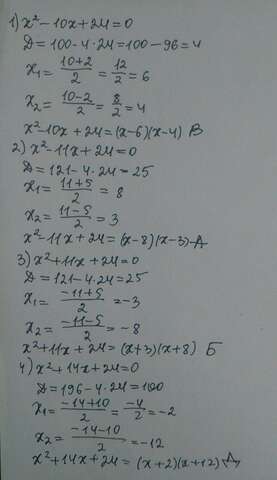 1) x² - 10x + 24 = 0
D = 100 - 4·24 = 100 - 96 = 4
x₁ = (10+2)/2 = 12/2 = 6
x₂ = (10-2)/2 = 8/2 = 4
x² - 10x + 24 = (x-6)(x-4) В
2) x² - 11x + 24 = 0
D = 121 - 4·24 = 25
x₁ = (11+5)/2 = 8
x₂ = (11-5)/2 = 3
x² - 11x + 24 = (x-8)(x-3) А
3) x² + 11x + 24 = 0
D = 121 - 4·24 = 25
x₁ = (-11+5)/2 = -3
x₂ = (-11-5)/2 = -8
x² + 11x + 24 = (x+3)(x+8) Б
4) x² + 14x + 24 = 0
D = 196 - 4·24 = 100
x₁ = (-14+10)/2 = -4/2 = -2
x₂ = (-14-10)/2 = -12
x² + 14x + 24 = (x+2)(x+12) Д